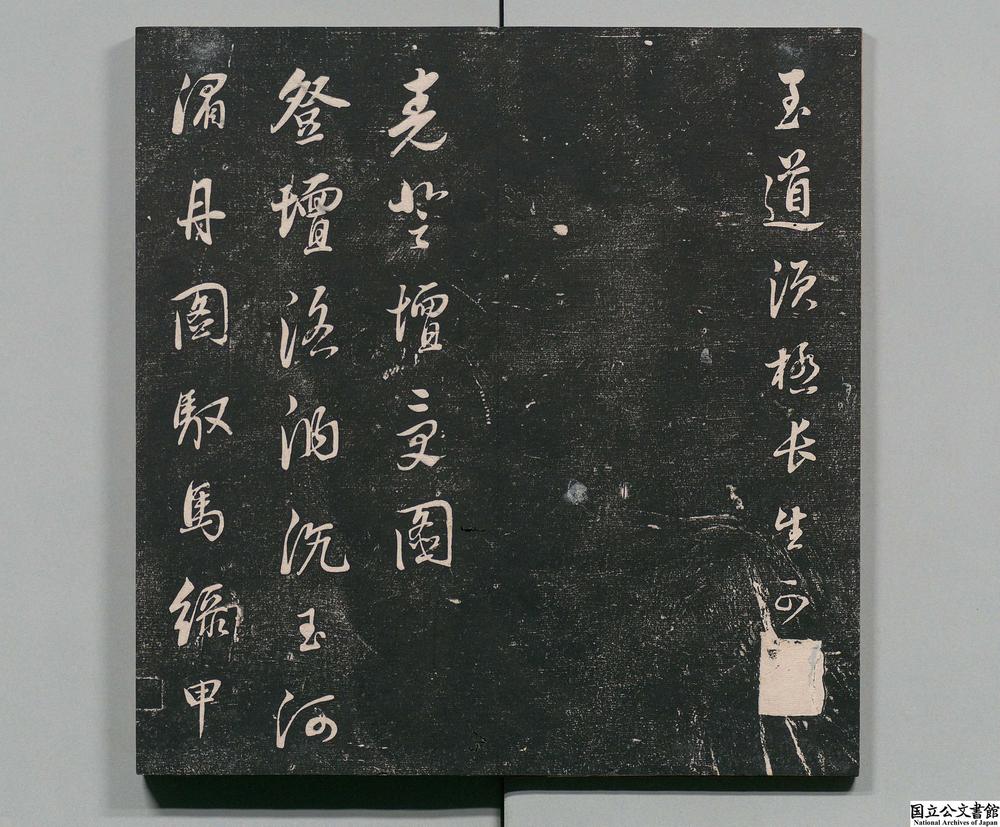 至道須極長生可
堯登壇受圖
登壇洛汭沉玉河
湄丹圖馭馬綠甲
国立公文書館
National Archives of Japan